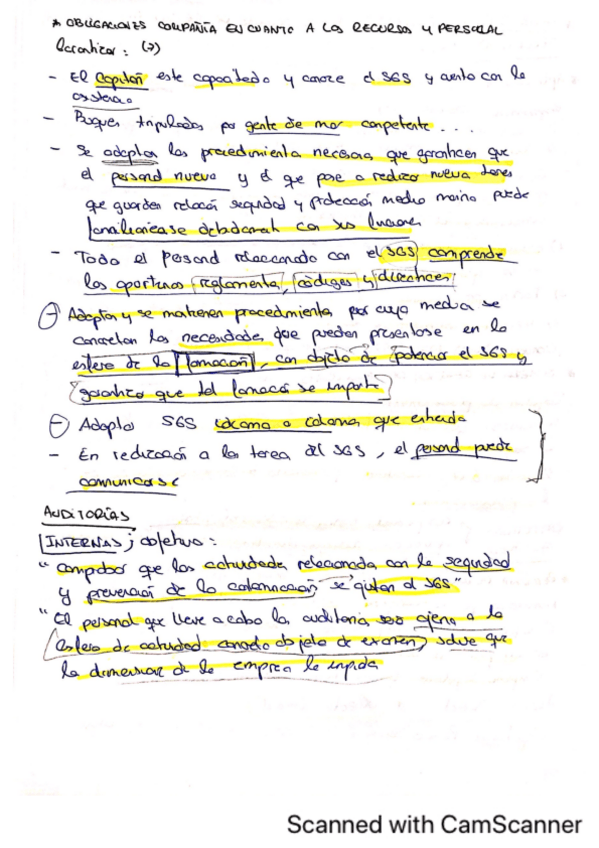 * OBLIGACIONES COMPAÑÍA EN CUANTO A LOS RECURSOS Y PERSONAL
Garantizar : (7)
- El Capitán este capacitado y conoce el SGS y cuenta con la
asistencia
- Buques tripulados por gente de mar competente . . .
- Se adoptan los procedimientos necesarios que garanticen que
el personal nuevo y el que pase a realizar nuevas tareas
que guarden relación seguridad y protección medio marino puede
familiarizarse debidamente con sus funciones
- Todo el personal relacionado con el SGS comprende
los oportunos reglamentos, códigos y directrices
- Adoptan y se mantienen procedimientos por cuyo medio se
concretan las necesidades que pueden presentarse en la
esfera de la formación, con objeto de potenciar el SGS y
garantiza que tal formación se imparte
- Adopta SGS idioma o idiomas que entienda
- En realización a las tareas del SGS, el personal puede
comunicarse
AUDITORÍAS
INTERNAS; objetivo :
"comprobar que las actividades relacionadas con la seguridad
y prevención de la contaminación se ajustan al SGS"
"El personal que lleve a cabo las auditorias, será ajeno a la
esfera de actividad cuando objeto de examen, salvo que
las dimensiones de la empresa lo impida
Scanned with CamScanner